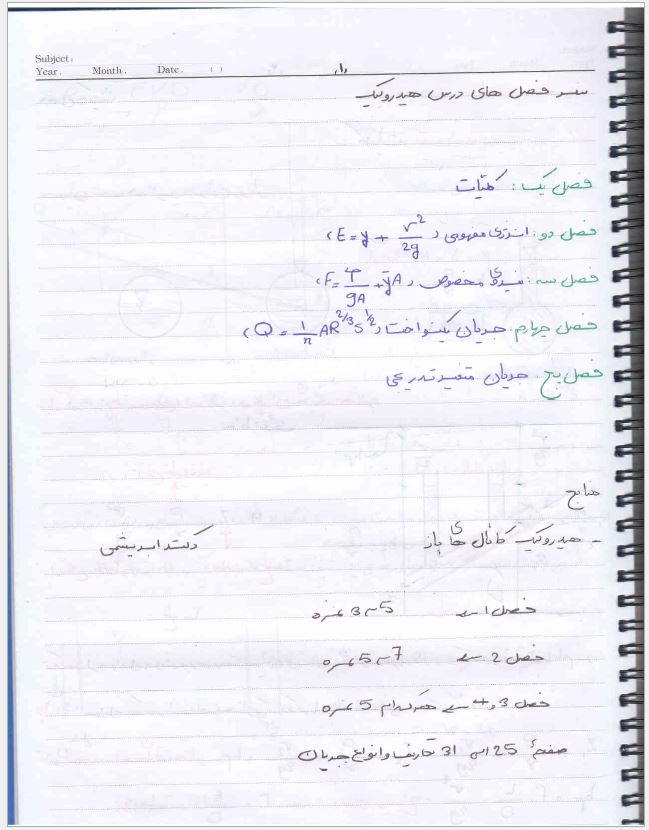 Subject:
Year. Month. Date. ( )
سر فصل های درس هیدرولیک
فصل یک: کلیّات
فصل دو: انرژی مخصوص (E = y + v²/2g)
فصل سه: نیروی مخصوص (F = Q²/gA + ȳA)
فصل چهارم: جریان یکنواخت (Q = 1/n AR^2/3 S^1/2)
فصل پنج: جریان متغیر تدریجی
منابع
- هیدرولیک کانال های باز دکتر ابریشمی
فصل 1 → 5 تا 3 نمره
فصل 2 → 7 تا 5 نمره
فصل 3 و 4 → هر کدام 5 نمره
صفحهٔ 25 الی 31 تعاریف و انواع جریان